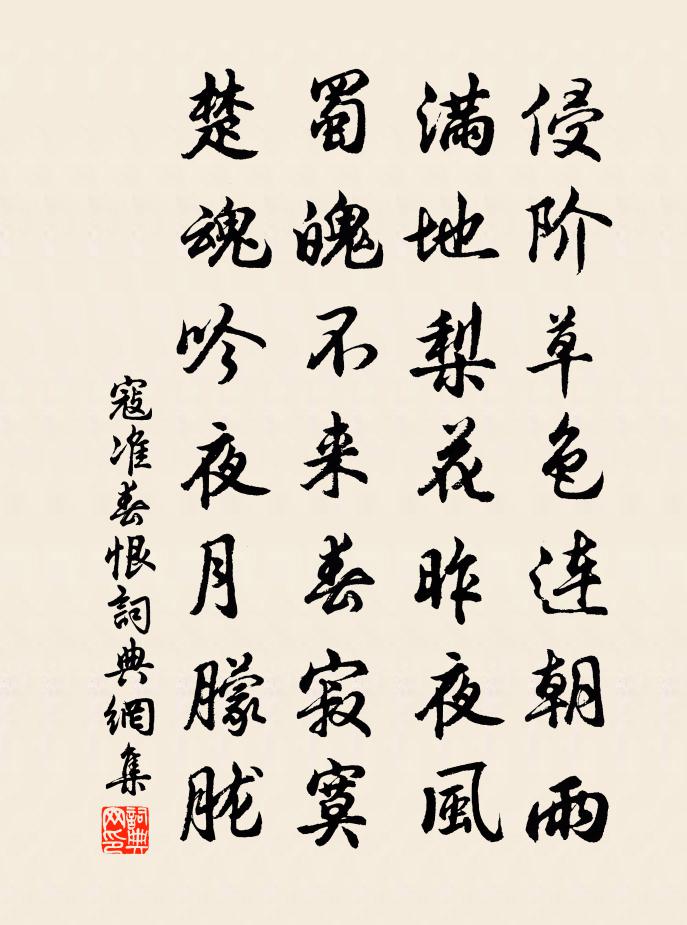 侵阶草色连朝雨
满地梨花昨夜風
蜀魄不来春寂寞
楚魂吟夜月朦胧
寇准春恨詞典網集
詞典网印